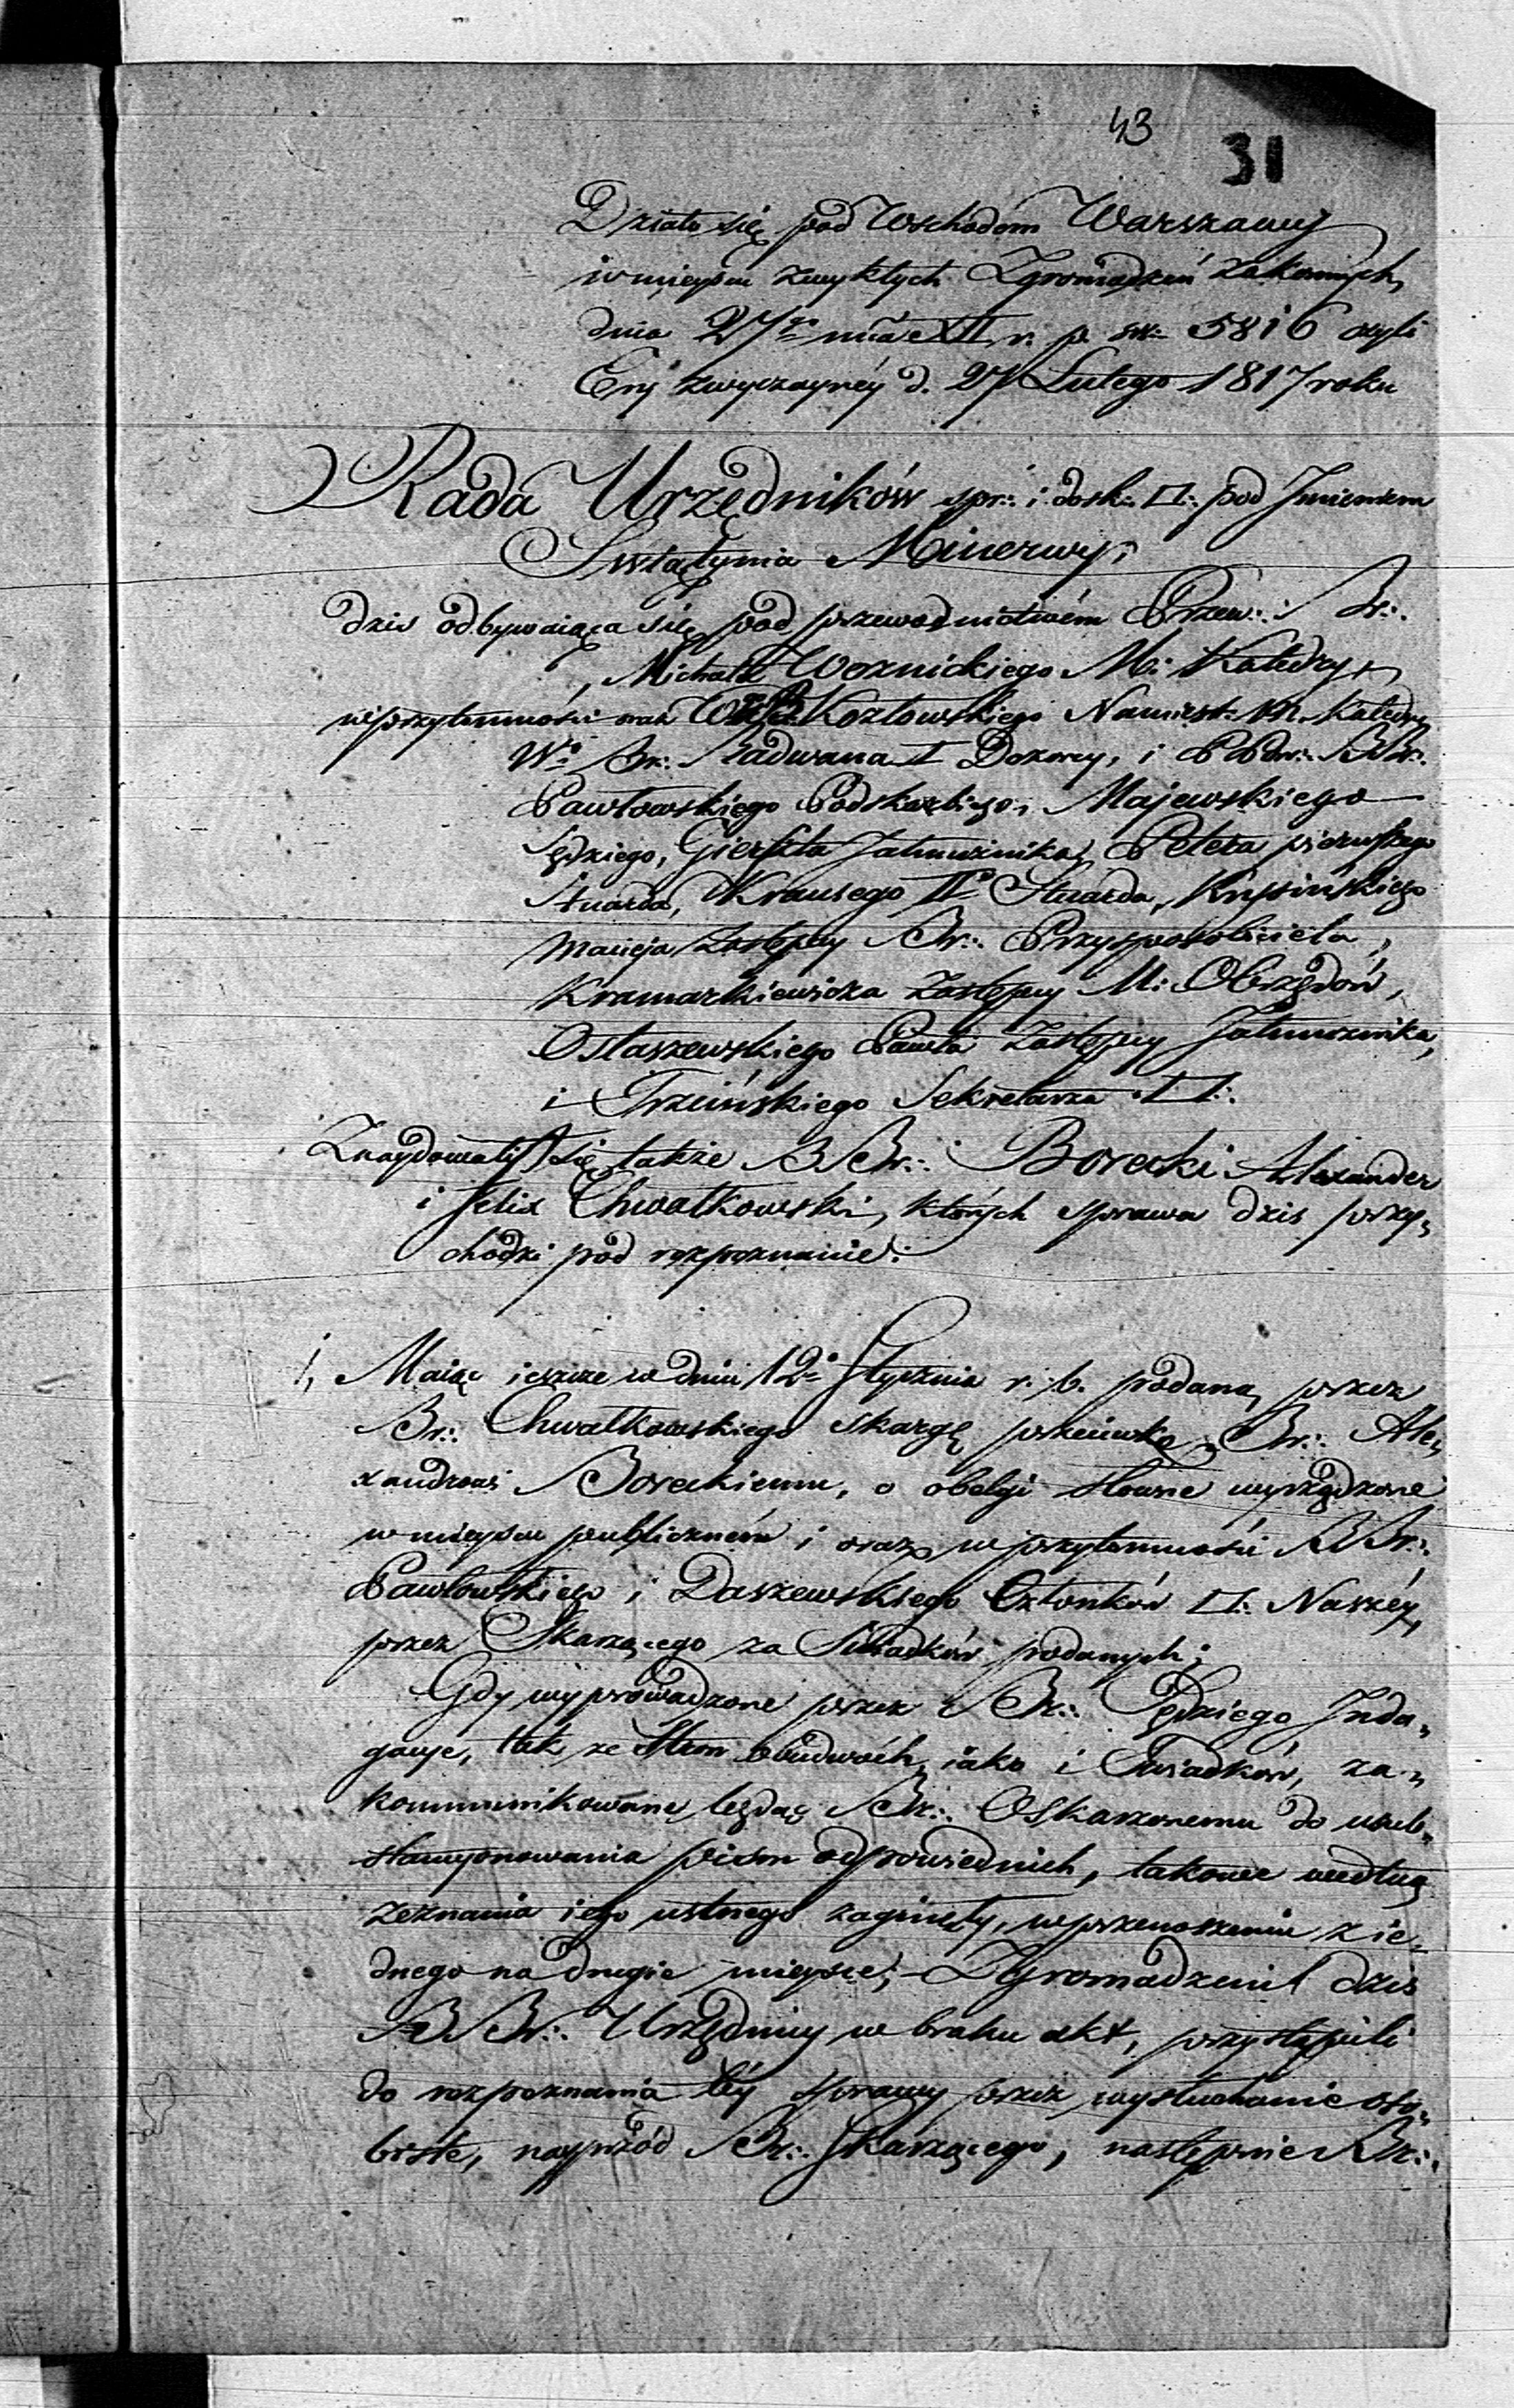 43
31
Działo się pod Wschodem Warszawy
w mieyscu zwykłych Zgromadzeń zakonnych,
dnia 27go mca XII r. p. sw: 5816 czyli
Ery zwyczayney d. 27 Lutego 1817 roku
Rada Urzędników spr: i dosk: □: pod Jmieniem
Swiątynia Minerwy;
dzis odbywaiąca się pod przewodnictwém Przew: Br:.
Michała Woznickiego M: Katedry,
w przytomności oraz Kozłowskiego Namiest: M. Katedry
Wo Br: Radwana I Dozorcy, i PPdn: BBr:.
Pawłowskiego Podskarbiego, Majewskiego
Sędziego, Jałmużnika, Petera pierwszego
Stuarda, Krausego IIo Stuarda, Krysińskiego
Macieja Zastępcy Br:. Przysposobiciela,
Kramarkiewicza Zastępcy M: Obrzędów,
Ostaszewskiego Pawła Zastępcy Jałmużnika,
i Trzcińskiego Sekretarza □:.
Znaydowali się także BBr:. Borecki Alexander
i Felix Chwatkowski, których sprawa dzis przy„
chodzi pod rozpoznanie:
1, Maiąc ieszcze w dniu 12o Stycznia r. b. podaną przez
Br:. Chwatkowskiego skargę przeciwko Br:. Ale„
xandrowi Boreckiemu, o obelgi słowne wyrządzone
w mieyscu publiczném i oraz w przytomności BBr:.
Pawłowskiego i Daszewskiego Członków □: Naszéy,
przez Skarzącego za Swiadków podanych;
Gdy wyprowadzone przez Br:. Sędziego Jnda„
gacye, tak ze Stron obudwóch, iako i Swiadków, za„
kommunikowane będąc Br:. Oskarzonemu do usub„
stancyonowania pism odpowiednich, takowe według
zeznania iego ustnego zaginęły, w przenoszeniu z ie„
dnego na drugie mieysce; – Zgromadzeni dzis
BBr:. Urzędnicy w braku akt, przystąpili
do rozpoznania téy sprawy przez wysłuchanie oso„
biste, nayprzód Br:. Skarzącego, następnie Br:.